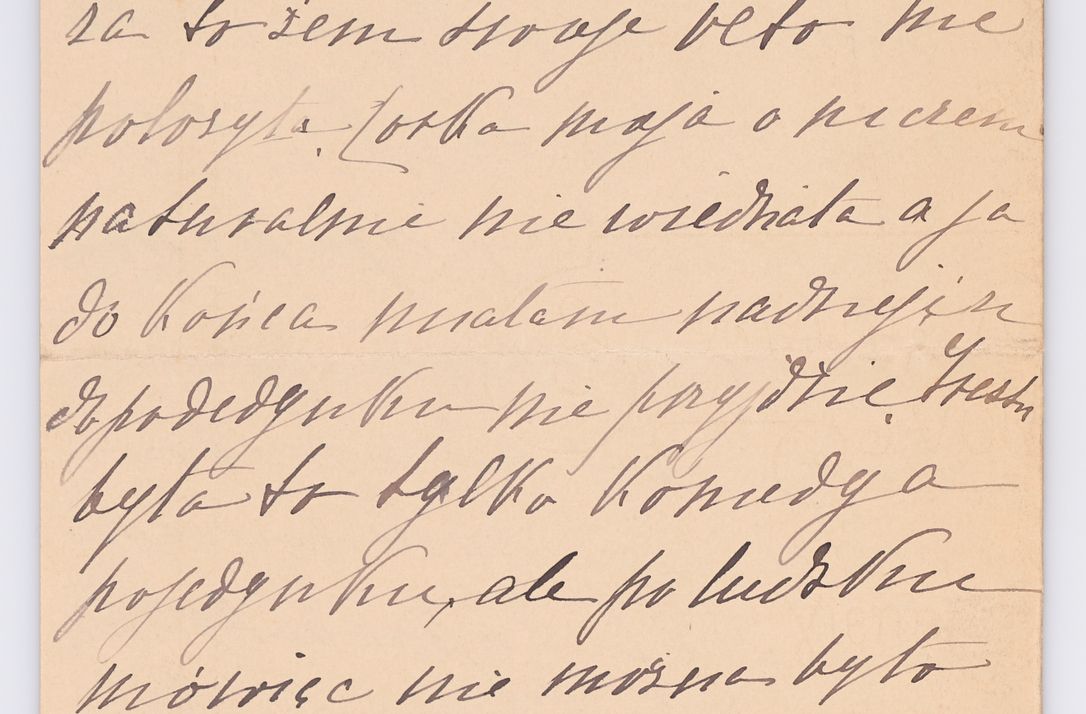 za to żem swoje veto nie
położyła. Córka moja o niczem
naturalnie nie wiedziała a ja
do końca miałam nadzieję, że
do podedynku nie przyjdzie. Zresztą
była to tylko komedya
pojedynku, ale po ludzku
mówiąc nie można było